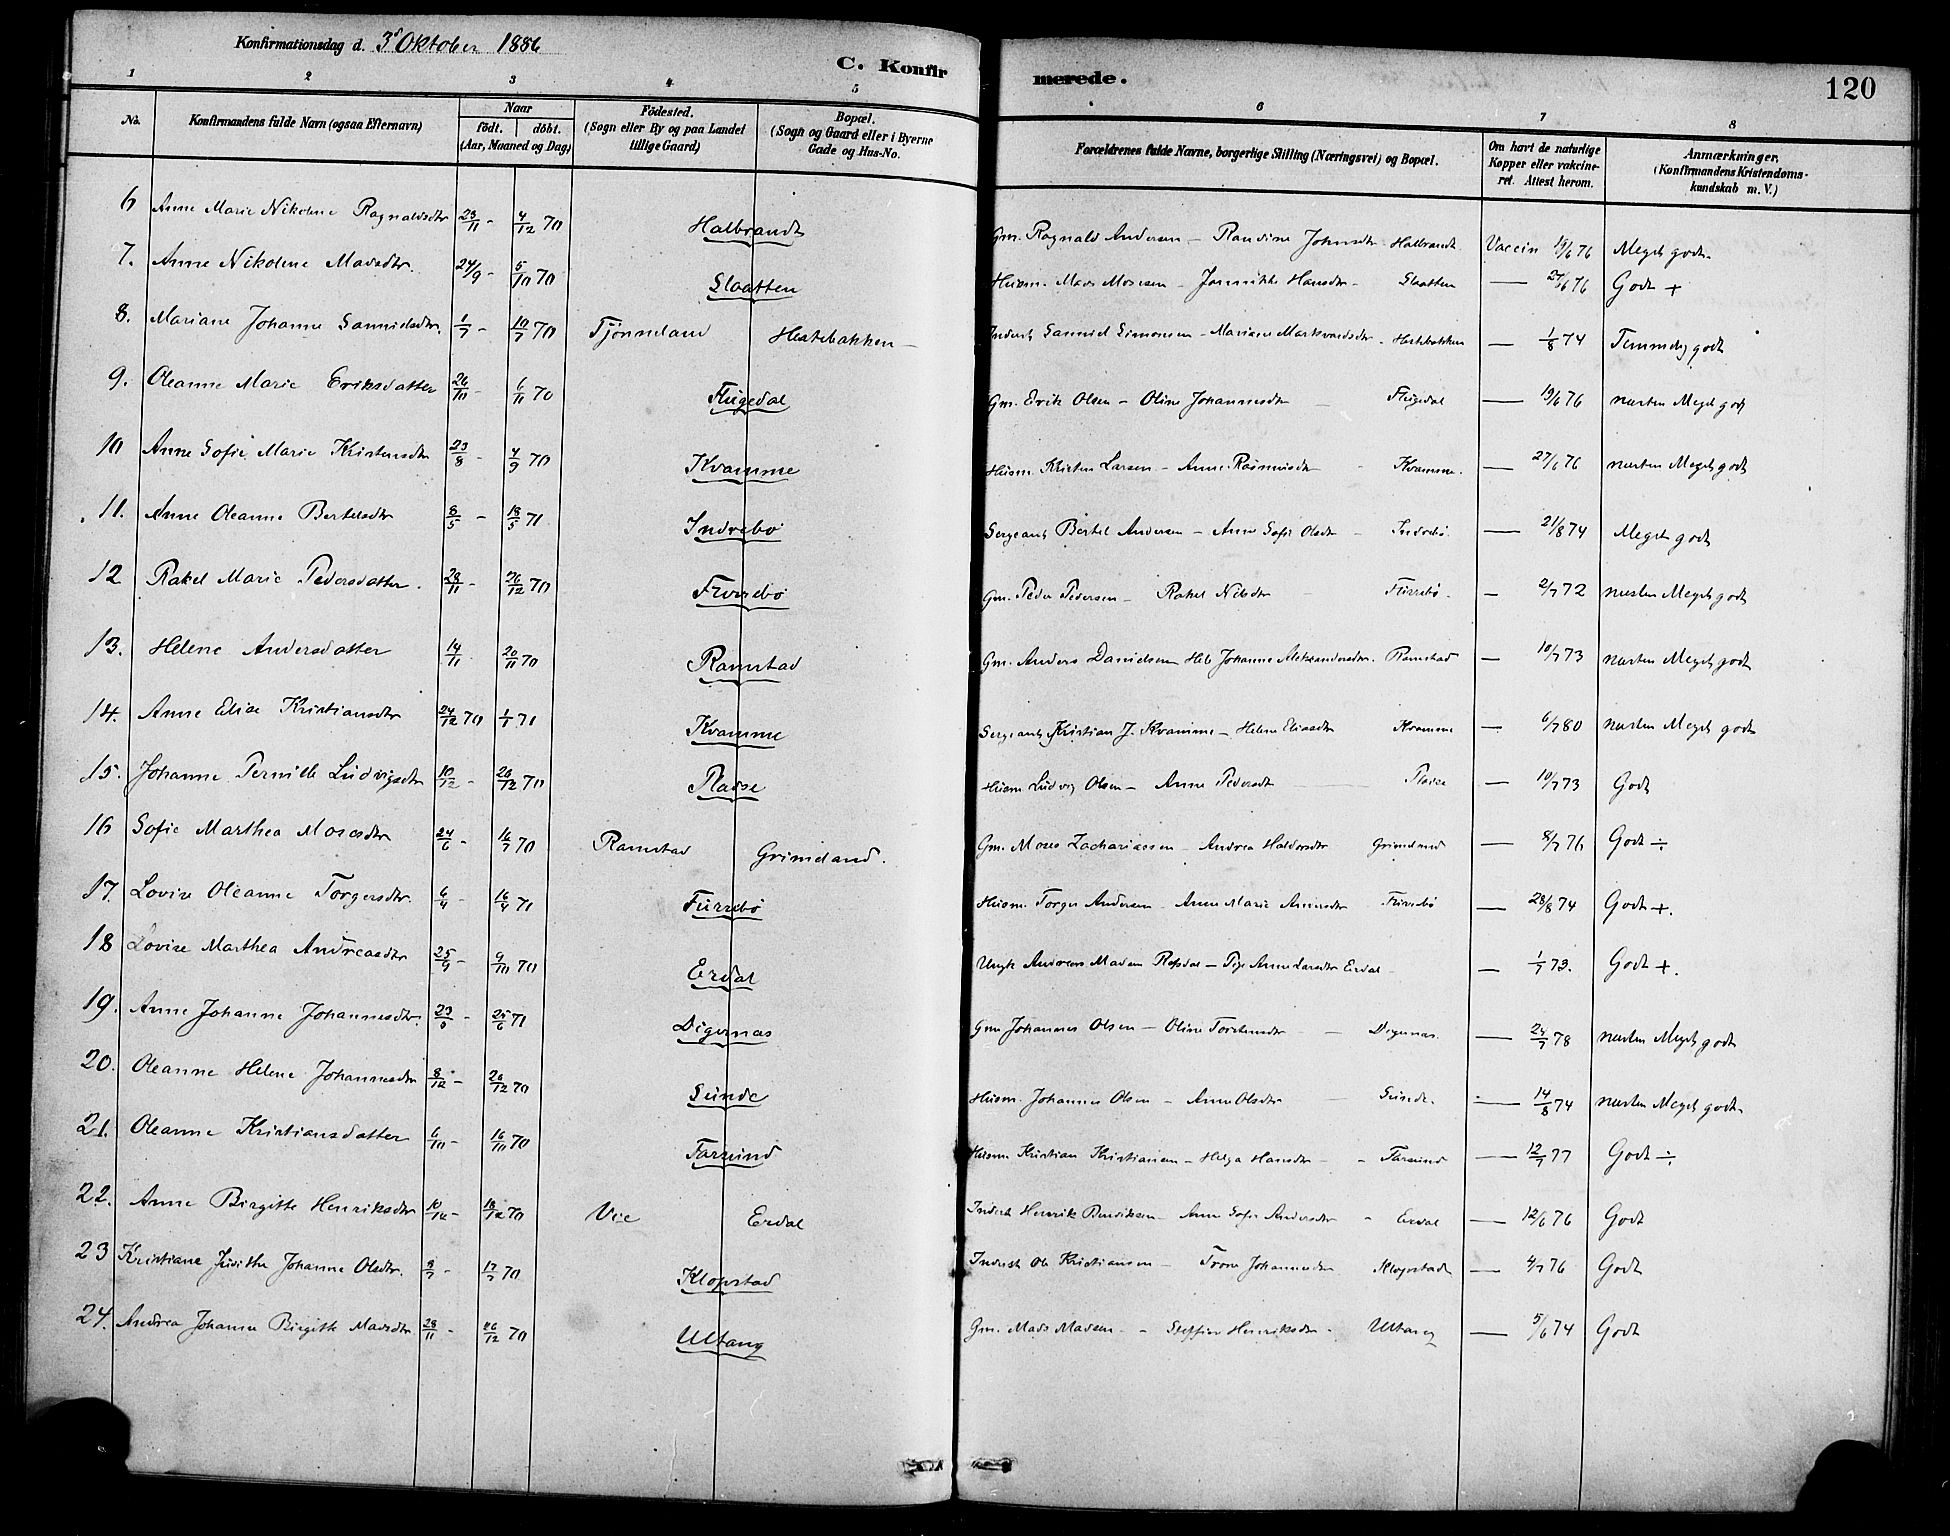 Konfirmationsdag d. 3 Oktober 1886
C. Konfirmerede.
120
1 2 3 4 5 6 7 8
No. Konfirmandens fulde Navn (ogsaa Efternavn) Naar født. døbt. (Aar, Maaned og Dag) Fødested. (Sogn eller By og paa Landet tillige Gaard) Bopæl. (Sogn og Gaard eller i Byerne Gade og Hus-No. Forældrenes fulde Navne, borgerlige Stilling (Næringsvei) og Bopæl. Om havt de naturlige Kopper eller vakcineret. Attest herom. Anmærkninger. (Konfirmandens Kristendomskundskab m. V.)
6 Anne Marie Nikoline Ragnaldsdtr 23/11 - 4/12 70 Halbrandt Gm. Ragnald Andersen - Randine Johnsdtr - Halbrandt Vaccin 19/6 76 Meget godt.
7. Anne Nikoline Madsdtr. 24/9 - 5/10 70 Slaatten Husm. Mads Mosesen - Jannikke Hansdtr - Slaatten — 27/6 76 Godt +
8. Mariane Johanne Samuelsdtr. 1/7 - 10/7 70 Tjønneland Hestebakken - Inderst Samuel Simonsen - Mariane Markvardsdtr - Hestebakken — 1/8 74 Temmelig godt
9. Oleanne Marie Eriksdatter 26/10 - 6/11 70 Flugedal Gm. Erik Olsen - Oline Johannesdtr - Flugedal — 19/6 76 næsten Meget godt
10 Anne Sofie Marie Kristensdtr 23/8 - 4/9 70 Kvamme Husm. Kristen Larsen - Anne Rasmusdtr - Kvamme. — 27/6 76 næsten Meget godt
11. Anne Oleanne Bertelsdtr 8/5 - 18/5 71 Indrebø Sergeant Bertel Andersen - Anne Sofie Olsdtr - Indrebø. — 21/8 74 Meget godt
12 Rakel Marie Pedersdatter. 28/11 - 26/12 70 Furrebø Gm. Peder Pedersen - Rakel Nilsdtr - Furrebø. — 2/7 72 næsten Meget godt
13. Helene Andersdatter 14/11 20/11 70 Ramstad Gm. Anders Danielsen Heb Johanne Aleksandersdtr. Ramstad — 10/7 73 næsten Meget godt
14. Anne Elise Kristiansdtr 24/12 70 1/1 71 Kvamme Sergeant Kristian J. Kvamme - Helene Eliasdtr Kvamme — 6/7 80 næsten Meget godt
15. Johanne Pernille Ludvigsdtr 10/12 - 26/12 70 Pladse Husm Ludvig Olsen - Anne Pedersdtr Pladse — 10/7 73 Godt
16 Sofie Marthea Mosesdtr 24/6 - 16/7 70 Ramstad Grimeland. Gm. Moses Zachariassen - Andrea Haldorsdtr Grimeland — 8/7 76 Godt ÷
17. Lovise Oleanne Torgersdtr. 6/4 - 16/4 71 Furrebø Husm. Torger Andersen - Anne Marie Annesdtr Furrebø — 28/8 74 Godt +.
18 Lovise Marthea Andreasdtr 25/9 - 9/10 70 Erdal Ungk Andreas Madsen - Pige Anne Larsdtr Erdal — 1/7 73. Godt +.
19. Anne Johanne Johannesdtr. 25/6 71 Digernæs Gm Johannes Olsen - Oline Torstensdtr - Digernæs. — 24/7 78 næsten Meget godt
20. Oleanne Helene Johannesdtr 8/12 - 26/12 70 Sunde Husm. Johannes Olsen - Anne Olsdtr Sunde. — 14/8 74 næsten Meget godt.
21. Oleanne Kristiansdatter 6/10 - 16/10 70 Farsund Husm Kristian Kristiansen - Helga Hansdtr - Farsund — 12/7 77 Godt ÷
22. Anne Birgitte Henriksdtr 10/12 - 18/12 70 Vie Erdal Inderst Henrik Bendiksen - Anne Sofie Andersdtr - Erdal — 12/6 76 Godt
23 Kristiane Judithe Johanne Olsdtr. 9/7 - 17/7 70 Klopstad Inderst Ole Kristiansen - Trone Johannesdtr Klopstad — 4/7 76 Godt
24. Andrea Johanne Birgitte Madsdtr 28/11 - 26/12 70 Ultang Gm. Mads Madsen - Henriksdtr - Ultang — 5/6 74 Godt